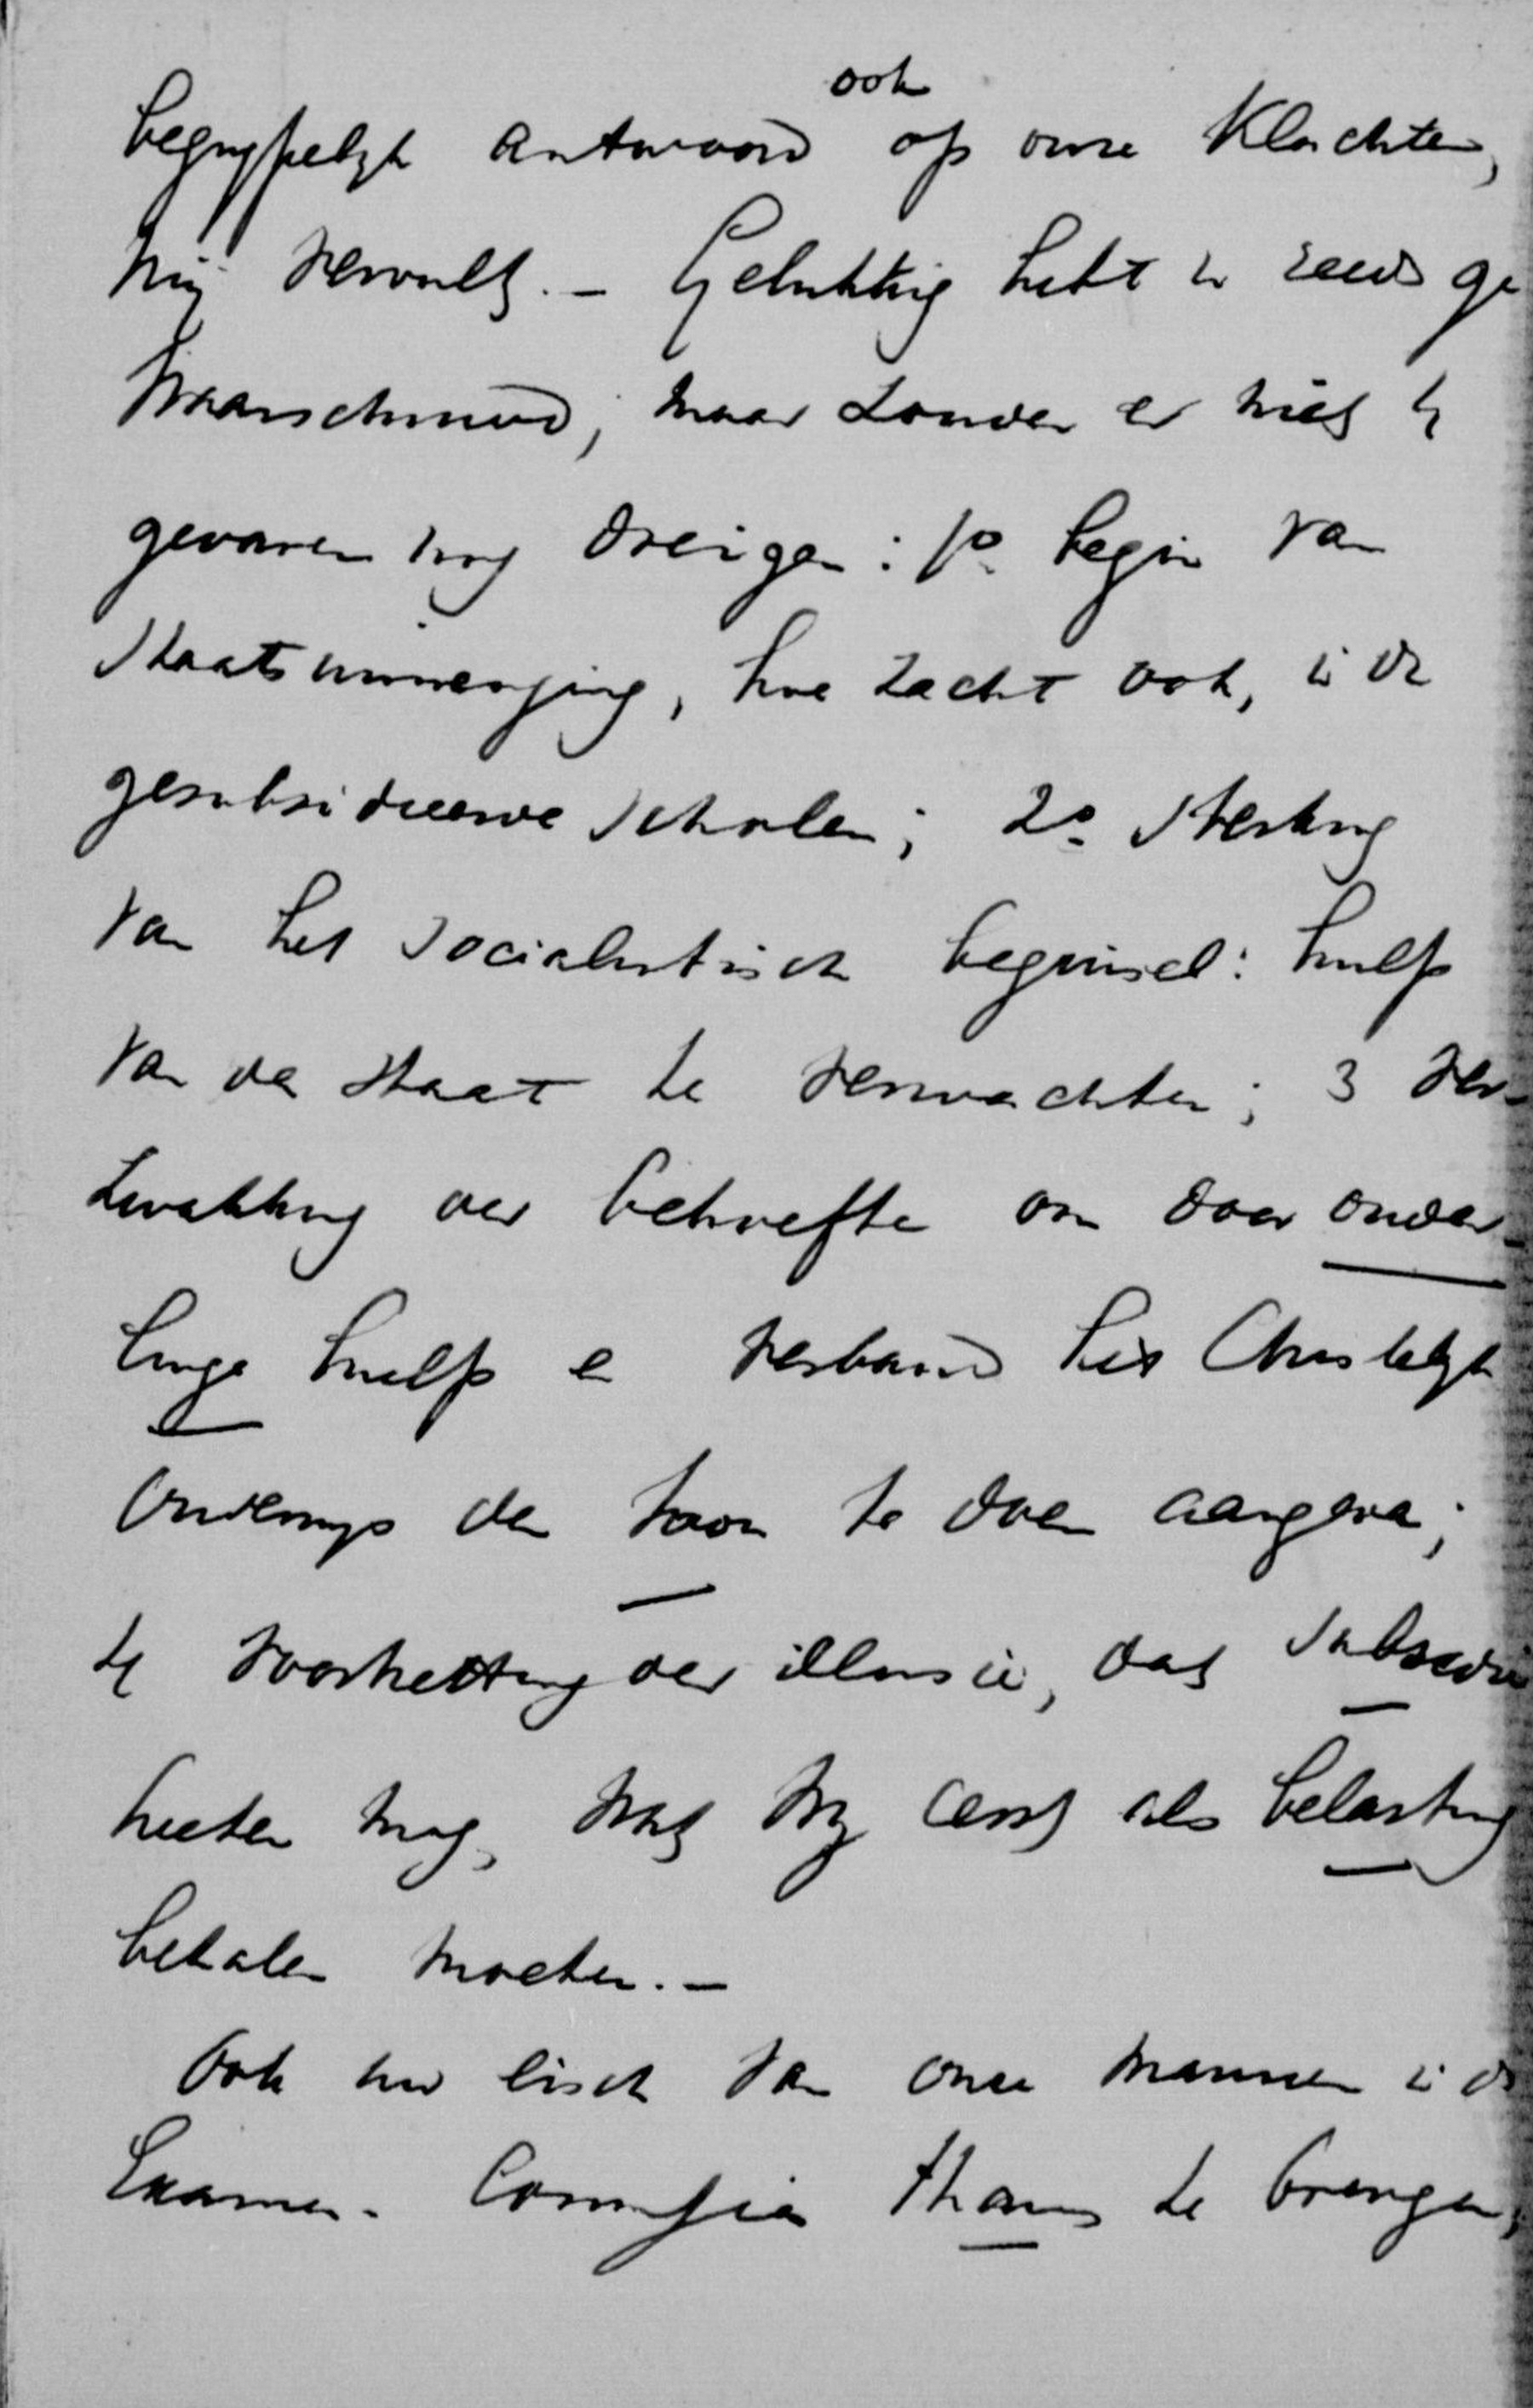 ook
begrijpelijk antwoord op onze Klachten,
mij vervult. – Gelukkig hebt u reeds ge
waarschuwd; maar zonder er niet 4
gevaren nog dreigen: 1º begin van
Staatsinmenging, hoe zacht ook, in de
gesubsidieerde scholen; 2º Sterking
van het socialistisch beginsel: hulp
van den Staat te verwachten; 3 ver-
zwakking der behoefte om door onder-
linge hulp en verband het Christelijk
Onderwijs den toon te doen aangeven;
4 voortzetting der illusie, dat Subsidie
heeten mag, wat wij eerst als belasting
betalen moeten. –
Ook uw eisch van onze mannen in de
Examen-Commissies thans te brengen,